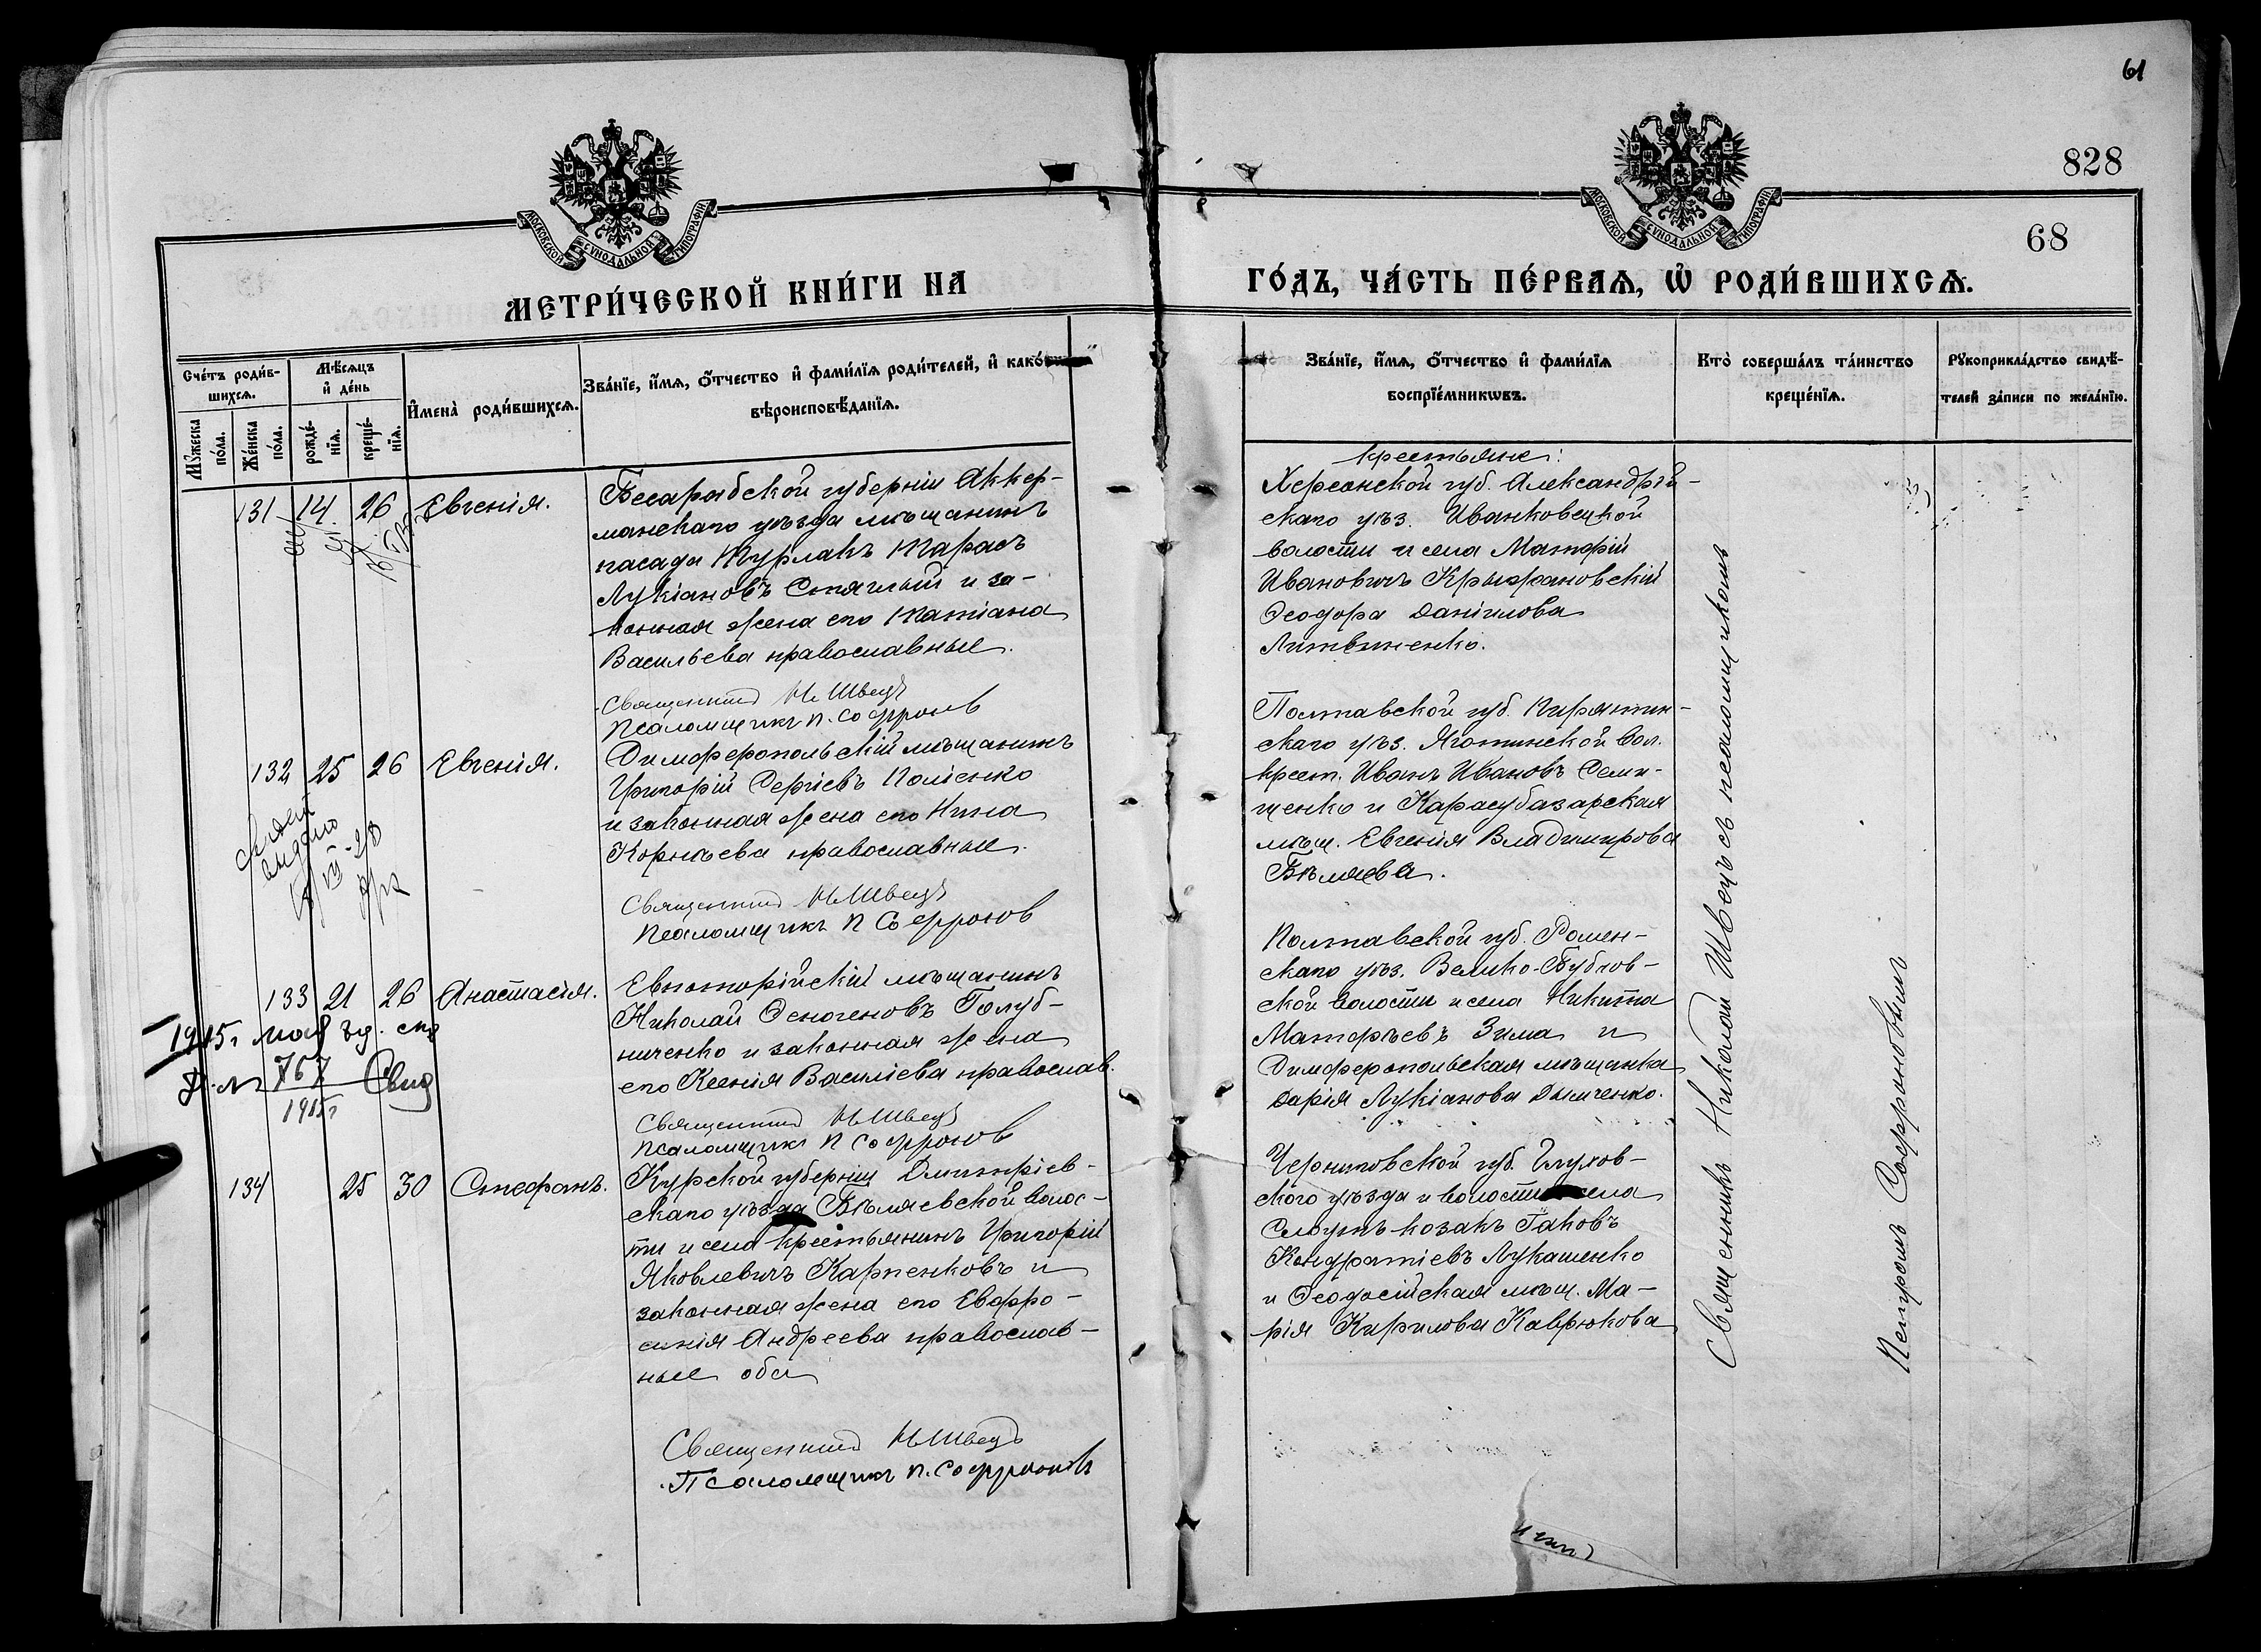 61
828
68
МОСКОВСКОЙ СУНОДАЛЬНОЙ ТИПОГРАФІИ
МОСКОВСКОЙ СУНОДАЛЬНОЙ ТИПОГРАФІИ
МЕТРИ́ЧЕСКОЙ КНИ́ГИ НА
ГО́ДЪ, ЧА́СТЬ ПЕ́РВАѦ, Ѡ҆ РОДИ́ВШИХСѦ.
Сче́тъ роди́в-
шихсѧ.
Мꙋ́жеска
по́ла.
Же́нска
по́ла.
Мѣ́сѧцъ
и҆ де́нь
рожде́-
нїѧ.
креще́-
нїѧ.
И҆мена̀ роди́вшихсѧ.
Зва́нїе, и҆́мѧ, ѻ҆́тчество и҆ фами́лїѧ роди́телей, и҆ како́
вѣроисповѣ́данїѧ.
Зва́нїе, и҆́мѧ, ѻ҆́тчество и҆ фами́лїѧ
воспрїе́мникѡвъ.
Кто̀ соверша́лъ та́инство
креще́нїѧ.
Рꙋкоприкла́дство свидѣ́-
телей за́писи по жела́нїю.
131 14 26 Евгенія.
Бесарабской губерніи Аккер-
манскаго уѣзда мѣщанинъ
посада Турлакъ Тарасъ
Лукіановъ Стяглый и за-
конная жена его Татіана
Васильева православные.
Священникъ Н Швецъ
Псаломщикъ П. Софронов
крестьяне:
Херсонской губ. Александрій-
скаго уѣз. Иванковецкой
волости и села Матфій
Ивановичъ Крыжановскій
Ѳеодора Даніилова
Литвиненко.
132 25 26 Евгенія.
выдано
Симферопольскій мѣщанинъ
Григорій Сергіевъ Поліенко
и законная жена его Нина
Корнѣева православные.
Священникъ Н Швецъ
Псаломщикъ П Софронов
Полтавской губ. Пирятин-
скаго уѣз. Яготинской вол.
крест. Иванъ Ивановъ Семи-
щенко и Карасубазарская
мѣщ. Евгенія Владимирова
Бѣляева.
133 21 26 Анастасія.
1915г мая
№ 767 Свид
1915г
Евпаторійскій мѣщанинъ
Николай Ѳеногеновъ Голуб-
ниченко и законная жена
его Ксенія Василіева православ.
Священникъ Н Швецъ
Псаломщикъ П Софронов
Полтавской губ. Ромен-
скаго уѣз. Велико-Бубнов-
ской волости и села Никита
Матфѣевъ Зима и
Симферопольская мѣщанка
Дарія Лукіанова Дымченко.
134 25 30 Стефанъ.
Курской губерніи Дмитріев-
скаго уѣзда Бѣляевской волос-
ти и села крестьянинъ Григорій
Яковлевичъ Карпенковъ и
законная жена его Евфро-
синія Андреева православ-
ные оба
Священникъ Н Швецъ
Псаломщикъ П. Софронов
Черниговской губ. Глухов-
ского уѣзда и волости села
Слоутъ козакъ Іаковъ
Кондратіевъ Лукашенко
и Ѳеодосійская мѣщ. Ма-
рія Кирилова Каврюкова
Священникъ Николай Швецъ съ псаломщикомъ
Петромъ Софроновымъ